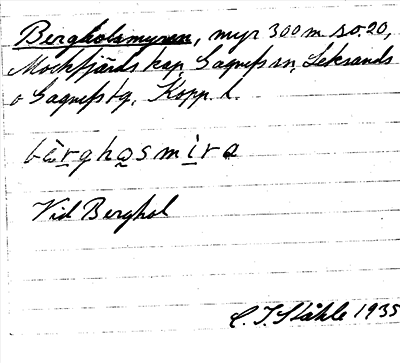 Bergholsmyran, myr 300 m s.o. 20,
Mockfjärds kap, Gagnefs sn, Leksands
o Gagnefs tg, Kopp. l.
bèrghọsmịra
Vid Berghol
C. I. Ståhle 1935